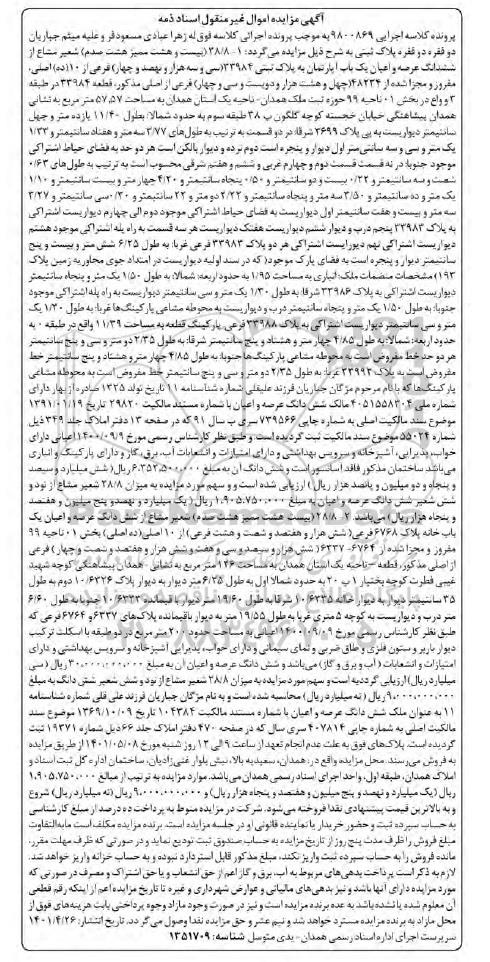 آگهی مزایده اموال غیر منقول اسناد ذمه
پرونده کلاسه اجرایی ۹۸۰۰۸۶۹ به موجب پرونده اجرائی کلاسه فوق له زهرا عبادی مسعودفر و علیه میثم جباریان
دو فقره دو فقره پلاک ثبتی به شرح ذیل مزایده می‌گردد: ۱- ۲۸/۸ (بیست و هشت ممیز هشت صدم) شعیر مشاع از
ششدانگ عرصه و اعیان یک باب آپارتمان به پلاک ثبتی ۳۳۹۸۴ (سی و سه هزار و نهصد و چهار) فرعی از ۱۰(ده) اصلی،
مفروز و مجزا شده از ۴۸۲۳۴ (چهل و هشت هزار و دویست و سی و چهار) فرعی از اصلی مذکور، قطعه ۳۳۹۸۴ در طبقه
۳ و واقع در بخش ۰۱ ناحیه ۹۹ حوزه ثبت ملک همدان- ناحیه یک استان همدان به مساحت ۵۷,۵۷ متر مربع به نشانی
همدان پیشاهنگی خیابان خجسته کوچه گلگون پ ۳۸ طبقه سوم به حدود شمالا: بطول ۱۱/۴۰ یازده متر و چهل
سانتیمتر دیواریست به پی پلاک ۳۶۹۹ شرقا: در دو قسمت به ترتیب به طول‌های ۳/۷۷ سه متر و هفتاد سانتیمتر و ۱/۳۳
یک متر و سی و سه سانتی‌متر اول دیوار و پنجره است دوم نرده و دیوار بالکن است هر دو حد به فضای حیاط اشتراکی
موجود جنوبا: در نه قسمت قسمت دوم و چهارم غربی و ششم و هفتم شرقی محسوب است به ترتیب به طول‌های ۰/۶۳
شصت و سه سانتیمتر و ۰/۲۲ بیست و دو سانتیمتر و ۰/۵۰ پنجاه سانتیمتر و ۴/۲۰ چهار متر و بیست سانتیمتر و ۱/۱۰
یک متر و ده سانتیمتر و ۳/۵۰ سه متر و پنجاه سانتیمتر و ۲/۲۲ دومتر و ۲۲ سانتیمتر و ۰/۳۰ سی سانتیمتر و ۳/۲۷
سه متر و بیست و هفت سانتیمتر اول دیواریست به فضای حیاط اشتراکی موجود دوم الی چهارم دیواریست اشتراکی
به پلاک ۳۳۹۸۳ پنجم درب و دیوار ششم دیواریست هفتم دیواریست هر سه قسمت به راه پله اشتراکی موجود هشتم
دیواریست اشتراکی نهم دیواریست اشتراکی هر دو پلاک ۳۳۹۸۳ فرعی غربا: به طول ۶/۲۵ شش متر و بیست و پنج
سانتیمتر دیوار و پنجره است به فضای پارک موجود( که در سند اولیه دیواریست در امتداد جوی مجاور به زمین پلاک
۱۹۳) مشخصات منضمات ملک: انباری به مساحت ۱/۹۵ به حدود اربعه: شمالا: به طول ۱/۵۰ یک متر و پنجاه سانتیمتر
دیواریست اشتراکی به پلاک ۳۳۹۸۶ شرقا: به طول ۱/۳۰ یک متر و سی سانتیمتر دیواریست به راه پله اشتراکی موجود
جنوبا: به طول ۱/۵۰ یک متر و پنجاه سانتیمتر درب و دیواریست به محوطه مشاعی پارکینگ‌ها غربا: به طول ۱/۳۰ یک
متر و سی سانتیمتر دیواریست اشتراکی به پلاک ۳۳۹۸۸ فرعی. پارکینگ قطعه به مساحت ۱۱/۳۹ واقع در طبقه ۰ به
حدود اربعه: شمالا: به طول ۴/۸۵ چهار متر و هشتاد و پنج سانتیمتر شرقا: به طول ۲/۳۵ دو متر و سی و پنج سانتیمتر
هر دو حد خط مفروض است به محوطه مشاعی پارکینگ‌ها جنوبا: به طول ۴/۸۵ چهار متر و هشتاد و پنج سانتیمتر خط
مفروض است به پلاک ۳۳۹۹۲ غربا: به طول ۲/۳۵ دو متر و سی و پنج سانتیمتر خط مفروض است به محوطه مشاعی
پارکینگ‌ها که با نام مرحوم مژگان جباریان فرزند علیقلی شماره شناسنامه ۱۱ تاریخ تولد ۱۳۲۵ صادره از بهار دارای
شماره ملی ۴۰۵۱۵۵۸۳۰۴ مالک شش دانگ عرصه و اعیان با شماره مستند مالکیت ۲۹۸۲۰ تاریخ ۱۳۹۱/۰۱/۱۹
موضوع سند مالکیت اصلی به شماره چاپی ۷۳۹۵۶۶ سری ب سال ۹۱ که در صفحه ۱۳ دفتر املاک جلد ۳۴۴ ذیل
شماره ۵۵۰۳۴ موضوع سند مالکیت ثبت گردیده است. و طبق نظر کارشناس رسمی مورخ ۱۴۰۰/۰۹/۹ اعیانی دارای
خواب، پذیرایی، آشپزخانه و سرویس بهداشتی و دارای امتیازات و انشعابات آب، برق، گاز و دارای پارکینگ و انباری
می‌باشد ساختمان مذکور فاقد آسانسور است و شش دانگ آن به مبلغ ۶,۳۵۲,۵۰۰,۰۰۰ ریال( شش میلیارد و سیصد
و پنجاه و دو میلیون و پانصد هزار ریال ) ارزیابی شده است و و سهم مورد مزایده به میزان ۲۸/۸ شعیر مشاع از نود و
شش شعیر شش دانگ عرصه و اعیان به مبلغ ۱,۹۰۵,۷۵۰,۰۰۰ ریال ( یک میلیارد و نهصد و پنج میلیون و هفتصد
و پنجاه هزار ریال) می‌باشد. ۲- ۲۸/۸ (بیست هشت ممیز هشت صدم) شعیر مشاع از شش دانگ عرصه و اعیان یک
باب خانه پلاک ۶۷۶۸ فرعی( شش هزار و هفتصد و شصت و هشت فرعی) از ۱۰ اصلی(ده اصلی) بخش ۰۱ ناحیه ۹۹
مفروز و مجزا شده از ۶۷۶۴- ۶۳۳۷ ( شش هزار و سیصد و سی و هفت و شش هزار و هفتصد و شصت و چهار) فرعی
از اصلی مذکور، قطعه -ناحیه یک استان همدان به مساحت ۱۴۶ متر مربع به نشانی: همدان پیشاهنگی کوچه شهید
غیبی فطرت کوچه بختیار ۱ پ ۲۰ به حدود شمالا اول به طول ۶/۲۵ متر دیوار به دیوار پلاک ۱۰/۶۳۲۶ دوم به طول
۳۵ سانتیمتر دیوار به دیوار خانه ۱۰/۶۳۲۵ شرقا به طول ۱۹/۶۰ متر دیوار به باقیمانده ۱۰/۶۳۳۳ جنوبا به طول ۶/۶۰
متر درب و دیواریست به کوچه ۵ متری غربا به طول ۱۹/۵۵ متر به دیوار باقیمانده پلاک‌های ۶۳۳۷ و ۶۷۶۴ فرعی که
طبق نظر کارشناس رسمی مورخ ۱۴۰۰/۰۹/۰۹ اعیانی به مساحت حدود ۲۰۰ متر مربع در دو طبقه با اسکلت ترکیب
دیوار باربر و ستون فلزی و طاق ضربی و نمای سیمانی و دارای خواب، پذیرایی آشپزخانه و سرویس بهداشتی و دارای
امتیازات و انشعابات ( آب و برق و گاز) می‌باشد و شش دانگ عرصه و اعیان آن به مبلغ ۳۰,۰۰۰,۰۰۰,۰۰۰ ریال ( سی
میلیارد ریال) ارزیابی گردیده است و سهم مورد مزایده به میزان ۲۸/۸ شعیر مشاع از نود و شش شعیر شش دانگ به مبلغ
۹,۰۰۰,۰۰۰,۰۰۰ ریال ( نه میلیارد ریال) محاسبه شده است و به نام مژگان جباریان فرزند علی قلی شماره شناسنامه
۱۱ به عنوان ملک شش دانگ عرصه و اعیان با شماره مستند مالکیت ۱۰۴۳۸۴ تاریخ ۱۳۶۹/۱۰/۰۹ موضوع سند
مالکیت اصلی به شماره چاپی ۴۰۷۸۱۴ سری سال که در صفحه ۴۷۰ دفتر املاک جلد ۶۶ ذیل شماره ۱۹۳۷۱ ثبت
گردیده است. پلاک‌های فوق به علت عدم انجام تعهد از ساعت ۹ الی ۱۲ روز شنبه مورخ ۱۴۰۱/۰۵/۰۸ از طریق مزایده
به فروش می‌رسند. محل مزایده واقع در: همدان، سعیدیه بالا، نبش بلوار غنی‌زادیان، ساختمان اداره کل ثبت اسناد و
املاک همدان، طبقه اول، واحد اجرای اسناد رسمی همدان می‌باشد. موارد مزایده به ترتیب از مبالغ ۱,۹۰۵,۷۵۰,۰۰۰
ریال (یک میلیارد و نهصد و پنج میلیون و هفتصد و پنجاه هزار ریال) و ۹,۰۰۰,۰۰۰,۰۰۰ ریال (نه میلیارد ریال) شروع
و به بالاترین قیمت پیشنهادی نقدا فروخته می‌شود. شرکت در مزایده منوط به پرداخت ده درصد از مبلغ کارشناسی
به حساب سپرده ثبت و حضور خریدار یا نماینده قانونی او در جلسه مزایده است. برنده مزایده مکلف است مابه‌التفاوت
مبلغ فروش را ظرف مدت پنج روز از تاریخ مزایده به حساب صندوق ثبت تودیع نماید و در صورتی که ظرف مهلت مقرر،
مانده فروش را به حساب سپرده ثبت واریز نکند، مبلغ مذکور قابل استرداد نبوده و به حساب خزانه واریز خواهد شد.
لازم به ذکر است پرداخت بدهی‌های مربوط به آب، برق و گاز اعم از حق انشعاب و یا حق اشتراک و مصرف در صورتی که
مورد مزایده دارای آنها باشد و نیز بدهی‌های مالیاتی و عوارض شهرداری و غیره تا تاریخ مزایده اعم از اینکه رقم قطعی
آن معلوم شده یا نشده باشد به عده برنده مزایده است و نیز در صورت وجود مازاد وجوه پرداختی بابت هزینه‌های فوق از
محل مازاد به برنده مزایده مسترد خواهد شد و نیم عشر و حق مزایده نقدا وصول می گردد. تاریخ انتشار: ۱۴۰۱/۴/۲۶
سرپرست اجرای اداره اسناد رسمی همدان - یدی متوسل شناسه: ۱۳۵۱۷۰۹